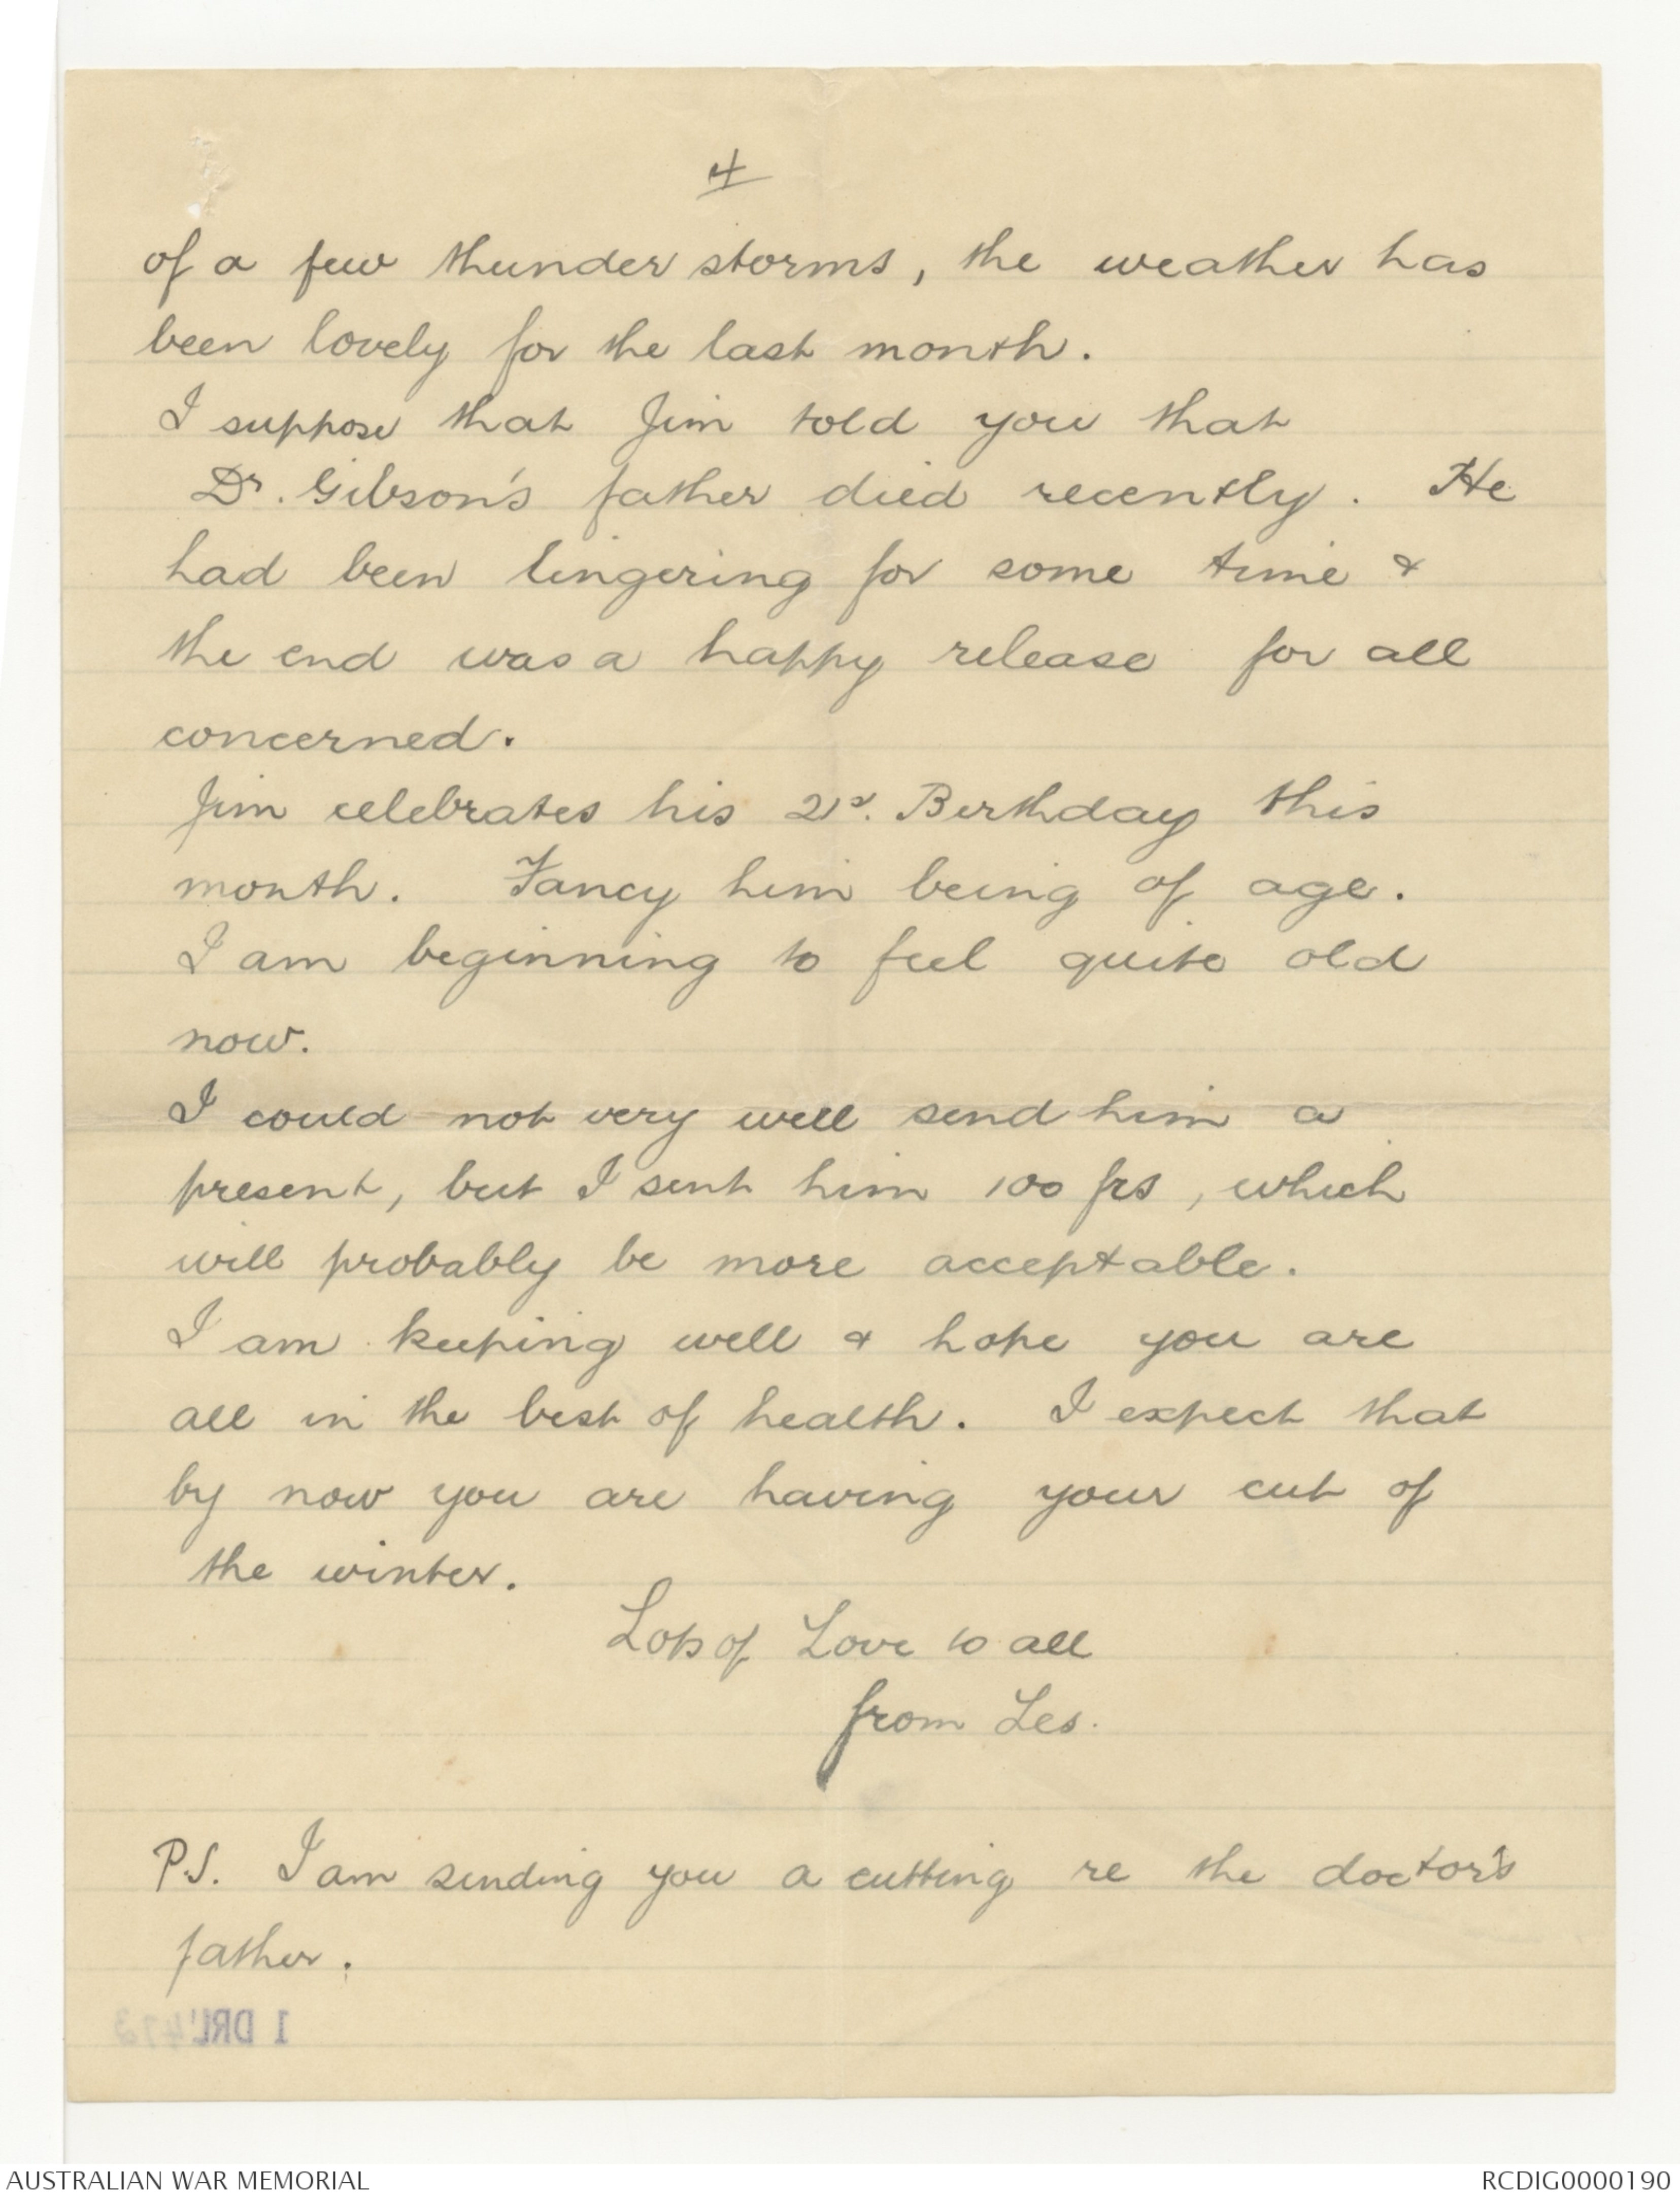 4
of a few thunder storms, the weather has
been lovely for the last month.
I suppose that Jim told you that
Dr. Gibson's father died recently. He
had been lingering for some time &
the end was a happy release for all
concerned.
Jim celebrates his 21st. Birthday this
month. Fancy him being of age.
I am beginning to feel quite old
now.
I could not very well send him a
present, but I sent him 100 frs, which
will probably be more acceptable.
I am keeping well & hope you are
all in the best of health. I expect that
by now you are having your cut of
the winter.
Lots of Love to all
from Les.
P.S. I am sending you a cutting re the doctor's
father.
1 DRL
AUSTRALIAN WAR MEMORIAL
RCDIG0000190